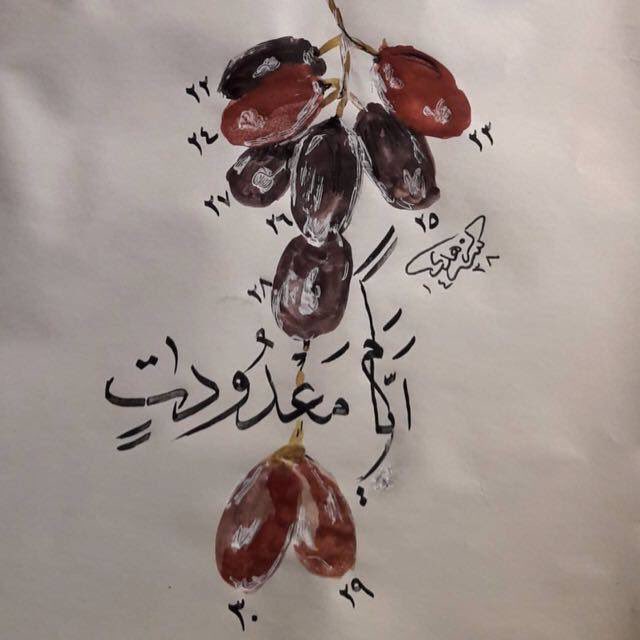 ٢٢
٢٤
٢٣
٢٧
٢٦
٢٥
٢٨
أَيَّامٍ مَعْدُودَاتٍ
٣٠
٢٩